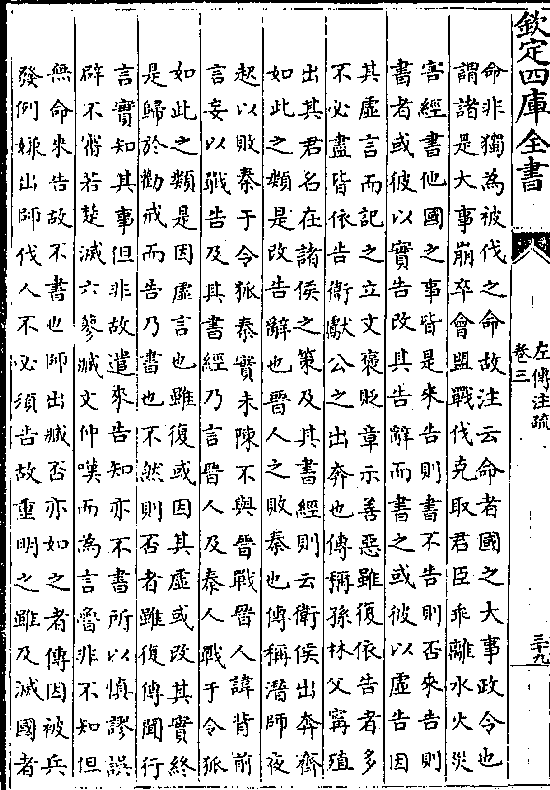 欽定四庫全書
左傳注疏
卷三
三十九
命非獨為被伐之命故注云命者國之大事政令也
謂諸是大事崩卒會盟戰伐克取君臣乖離水火災
害經書他國之事皆是來告則書不告則否來告則
書者或彼以實告改其告辭而書之或彼以虛告因
其虛言而記之立文褒貶章示善惡雖復依告者多
不必盡皆依告衛獻公之出奔也傳稱孫林父甯殖
出其君名在諸侯之策及其書經則云衛侯出奔齊
如此之類是改告辭也晉人之敗秦也傳稱潛師夜
起以敗秦于令狐秦實未陳不與晉戰晉人諱背前
言妄以戰告及其書經乃言晉人及秦人戰于令狐
如此之類是因虛言也雖復或因其虛或改其實終
是歸於勸戒而告乃書也不然則否者雖復傳聞行
言實知其事但非故遣來告知亦不書所以慎謬誤
辟不審若楚滅六蓼臧文仲嘆而為言魯非不知但
無命來告故不書也師出臧否亦如之者傳因被兵
發例嫌出師伐人不必須告故重明之雖及滅國者